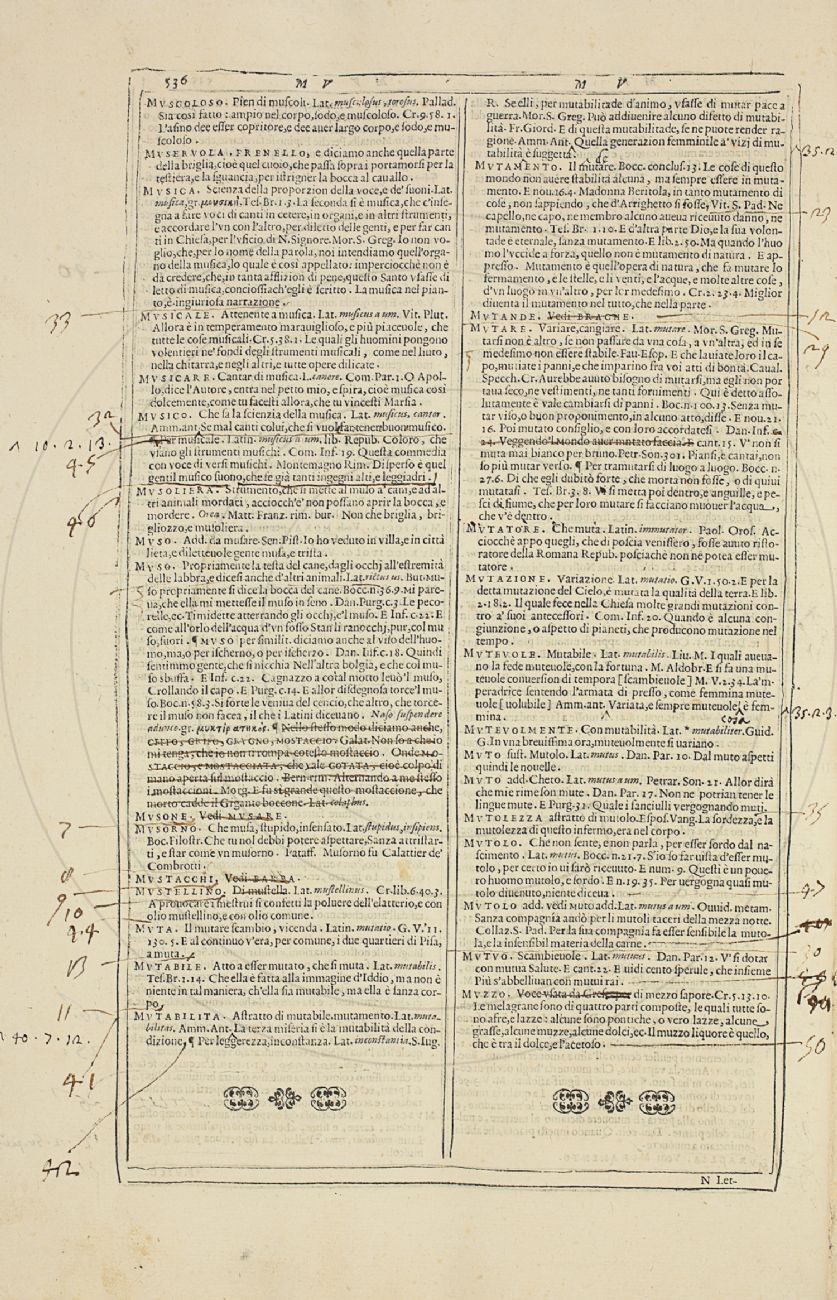 536
M V
M V
MVSCOLOSO. Pien di muscoli. Lat. musculosus, torosus. Pallad.
Sia così fatto: ampio nel corpo, sodo, e muscoloso. Cr. 9. 58. 1.
L'asino dee esser copritore, e dee auer largo corpo, e sodo, e mu-
scoloso.
MVSERVOLA. FRENELLO, e diciamo anche quella parte
della briglia, cioè quel cuoio, che passa sopra i portamorsi per la
testiera, e la sguancia, per istrigner la bocca al cauallo.
MVSICA. Scienza della proporzion della voce, e de' suoni. Lat.
musica, gr. μουσική. Tes. Br. 1. 3. La seconda si è musica, che c'inse-
gna a fare voci di canti in cetere, in organi, e in altri strumenti,
e accordare l'vn con l'altro, per diletto delle genti, e per far can
ti in Chiesa, per l'vficio di N. Signore. Mor. S. Greg. Io non vo-
glio, che, per lo nome della parola, noi intendiamo quell'orga-
no della musica, lo quale è così appellato: imperciocchè non è
da credere, che, in tanta afflizion di pene, questo Santo vsasse di
letto di musica, conciossiach'egli è scritto. La musica nel pian-
to, è ingiuriosa narrazione.
MVSICALE. Attenente a musica. Lat. musicus a um. Vit. Plut.
Allora è in temperamento marauiglioso, e più piaceuole, che
tutte le cose musicali. Cr. 5. 38. 1. Le quali gli huomini pongono
volentieri ne' fondi degli strumenti musicali, come nel liuto,
nella chitarra, e negli altri, e tutte opere dilicate.
MVSICARE. Cantar di musica. L. canere. Com. Par. 1. O Apol-
lo, dice l'Autore, entra nel petto mio, e spira, cioè musica così
dolcemente, come tu facesti allora, che tu vincesti Marsia.
MVSICO. Che sa la scienzia della musica. Lat. musicus, cantor.
Amm. ant. Se mal canti colui, che si vuol far tener buon musico.
¶ Per musicale. Latin. musicus a um. lib. Repub. Coloro, che
vsano gli strumenti musichi. Com. Inf. 19. Questa commedia
con voce di versi musichi. Montemagno Rim. Disperso è quel
gentil musico suono, che fe già tanti ingegni alti, e leggiadri.
MVSOLIERA. Strumento, che si mette al muso a' cani, e ad al-
tri animali mordaci, acciocch'e' non possano aprir la bocca, e
mordere. Orca. Matt. Franz. rim. bur. Non che briglia, bri-
gliozzo, e musoliera.
MVSO. Add. da musare. Sen. Pist. Io ho veduto in villa, e in città
lieta, e diletteuole gente musa, e trista.
MVSO. Propriamente la testa del cane, dagli occhj all'estremità
delle labbra, e dicesi anche d'altri animali. Lat. rictus us. But. Mu-
so propriamente si dice la bocca del cane. Bocc. n. 36. 9. Mi pare-
ua, che ella mi mettesse il muso in seno. Dan. Purg. c. 3. Le peco-
relle, ec. Timidette atterrando gli occhj, e'l muso. E Inf. c. 22. E
come all'orlo dell'acqua d'vn fosso Stan li ranocchj, pur, col mu
so, fuori. ¶ MVSO per similit. diciamo anche al viso dell'huo-
mo, ma, o per ischerno, o per ischerzo. Dan. Inf. c. 18. Quindi
sentimmo gente, che si nicchia Nell'altra bolgia, e che col mu-
so sbuffa. E Inf. c. 22. Cagnazzo a cotal motto leuò'l muso,
Crollando il capo. E Purg. c. 14. E allor disdegnosa torce'l mu-
so. Boc. n. 58. 3. Sì forte le veniua del cencio, che altro, che torce-
re il muso non facea, il che i Latini diceuano. Naso suspendere
adunco. gr. ¶ Nello stesso modo diciamo anche,
CEFFO, GRIFO, GRVGNO, MOSTACCIO. Galat. Non so a chio
mi tenga, che io non ti rompa cotesto mostaccio. Onde MO-
STACCIO, e MOSTACCIATA, che vale GOTATA, cioè colpo di
mano aperta sul mostaccio. Bern. rim. Alternando a me stesso
i mostaccioni. Morg. E fu sì grande questo mostaccione, che
morto cadde il Gigante boccone. Lat. colaphus.
MVSONE. Vedi MVSARE.
MVSORNO. Che musa, stupido, insensato. Lat. stupidus, insipiens.
Boc. Filostr. Che tu nol debbi potere aspettare, Sanza attristar-
ti, e star come vn musorno. Pataff. Musorno fu Calattier de'
Combrotti.
MVSTACCHI, Vedi BARBA.
MVSTELLINO, Di mustella. Lat. mustellinus. Cr. lib. 6. 40. 3.
A prouocare i mestrui si confetti la poluere dell'elatterio, e con
olio mustellino, e con olio comune.
MVTA. Il mutare scambio, vicenda. Latin. mutatio. G. V. 11.
130. 5. E al continuo v'era, per comune, i due quartieri di Pisa,
a muta.
MVTABILE. Atto a esser mutato, che si muta. Lat. mutabilis.
Tes. Br. 1. 14. Che ella è fatta alla immagine d'Iddio, ma non è
niente in tal maniera, ch'ella sia mutabile, ma ella è sanza cor-
po.
MVTABILITA. Astratto di mutabile. mutamento. Lat. muta-
bilitas. Amm. Ant. La terza miseria si è la mutabilità della con-
dizione. ¶ Per leggerezza, inconstanza. Lat. inconstantia. S. Iug.
R. Se elli, per mutabilitade d'animo, vsasse di mutar pace a
guerra. Mor. S. Greg. Può addiuenire alcuno difetto di mutabi-
lità. Fr. Giord. E di questa mutabilitade, se ne puote render ra-
gione. Amm. Ant. Quella generazion femminile a' vizj di mu-
tabilità è suggetta.
MVTAMENTO. Il mutare. Bocc. conclus. 13. Le cose di questo
mondo non auere stabilità alcuna, ma sempre essere in muta-
mento. E nou. 16. 4. Madonna Beritola, in tanto mutamento di
cose, non sappiendo, che d'Arrighetto si fosse, Vit. S. Pad. Ne
capello, ne capo, ne membro alcuno aueua riceuuto danno, ne
mutamento. Tes. Br. 1. 10. E d'altra parte Dio, e la sua volon-
tade è eternale, sanza mutamento. E lib. 2. 50. Ma quando l'huo
mo l'vccide a forza, quello non è mutamento di natura. E ap-
presso. Mutamento è quell'opera di natura, che fa mutare lo
fermamento, e le stelle, e li venti, e l'acque, e molte altre cose,
d'vn luogo in vn'altro, per lor medesimo. Cr. 2. 23. 4. Miglior
diuenta il mutamento nel tutto, che nella parte.
MVTANDE. Vedi BRACHE.
MVTARE. Variare, cangiare. Lat. mutare. Mor. S. Greg. Mu-
tarsi non è altro, se non passare da vna cosa, a vn'altra, ed in se
medesimo non essere stabile. Fau. Esop. E che lauiate loro il ca-
po, mutiate i panni, e che imparino fra voi atti di bontà. Caual.
Specch. Cr. Aurebbe auuto bisogno di mutarsi, ma egli non por
taua seco, ne vestimenti, ne tanti fornimenti. Qui è detto asso-
lutamente e vale cambiarsi di panni. Boc. n. 100. 13. Senza mu-
tar viso, o buon proponimento, in alcuno atto, disse. E nou. 21.
16. Poi mutato consiglio, e con loro accordatesi. Dan. Inf. c.
24. Veggendo'l Mondo auer mutato faccia. E cant. 15. V' non si
muta mai bianco per bruno. Petr. Son. 301. Piansi, e cantai, non
so più mutar verso. ¶ Per tramutarsi di luogo a luogo. Bocc. n.
27. 6. Di che egli dubitò forte, che morta non fosse, o di quiui
mutatasi. Tes. Br. 3. 8. Vi si metta poi dentro, e anguille, e pe-
sci di fiume, che per loro mutare si facciano muouer l'acqua,
che v'è dentro.
MVTATORE. Che muta. Latin. immutator. Paol. Oros. Ac-
ciocchè appo quegli, che di poscia venissero, fosse auuto risto-
ratore della Romana Repub. posciachè non ne potea esser mu-
tatore.
MVTAZIONE. Variazione. Lat. mutatio. G. V. 1. 50. 2. E per la
detta mutazione del Cielo, è mutata la qualità della terra. E lib.
2. 18. 2. Il quale fece nella Chiesa molte grandi mutazioni con-
tro a' suoi antecessori. Com. Inf. 20. Quando è alcuna con-
giunzione, o aspetto di pianeti, che producono mutazione nel
tempo.
MVTEVOLE. Mutabile. Lat. mutabilis. Liu. M. I quali aueua-
no la fede muteuole, con la fortuna. M. Aldobr. E si fa una mu-
teuole conuersion di tempora [scambieuole] M. V. 2. 34. La'm-
peradrice sentendo l'armata di presso, come femmina mute-
uole [uolubile] Amm. ant. Variata, e sempre muteuole è fem-
mina.
cosa
MVTEVOLMENTE. Con mutabilità. Lat. * mutabiliter. Guid.
G. In vna breuissima ora, muteuolmente si uariano.
MVTO sust. Mutolo. Lat. mutus. Dan. Par. 10. Dal muto aspetti
quindi le nouelle.
MVTO add. Cheto. Lat. mutus a um. Petrar. Son. 21. Allor dirà
che mie rime son mute. Dan. Par. 17. Non ne potrian tener le
lingue mute. E Purg. 31. Quale i fanciulli vergognando muti.
MVTOLEZZA astratto di mutolo. Espos. Vang. La sordezza, e la
mutolezza di questo infermo, era nel corpo.
MVTOLO. Che non sente, e non parla, per esser sordo dal na-
scimento. Lat. mutus. Bocc. n. 21. 7. S'io so far uista d'esser mu-
tolo, per certo io ui sarò riceuuto. E num. 9. Questi è un poue-
ro huomo mutolo, e sordo. E n. 19. 35. Per uergogna quasi mu-
tolo diuenuto, niente diceua.
MVTOLO add. vedi Muto add. Lat. mutus a um. Ouuid. metam.
Sanza compagnia andò per li mutoli taceri della mezza notte.
Collaz. S. Pad. Per la sua compagnia fa esser sensibile la muto-
la, e la insensibil materia della carne.
MVTVO. Scambieuole. Lat. mutuus. Dan. Par. 12. V' si dotar
con mutua Salute. E cant. 22. E uidi cento sperule, che insieme
Più s'abbelliuan con mutui rai.
MVZZO. Voce vsata da Crescenzo di mezzo sapore. Cr. 5. 13. 10.
Le melagrane sono di quattro parti composte, le quali tutte so-
no afre, e lazze: alcune sono pontiche, o vero lazze, alcune,
grasse, alcune muzze, alcune dolci, ec. Il muzzo liquore è quello,
che è tra il dolce, e l'acetoso.
N Let-
33
32
10. 2. 13.
4-5
46
7
8
9
10
13
11
40. 7. 12.
41
42
35. 12
23
12
29
35. 2. 3.
35
47
50